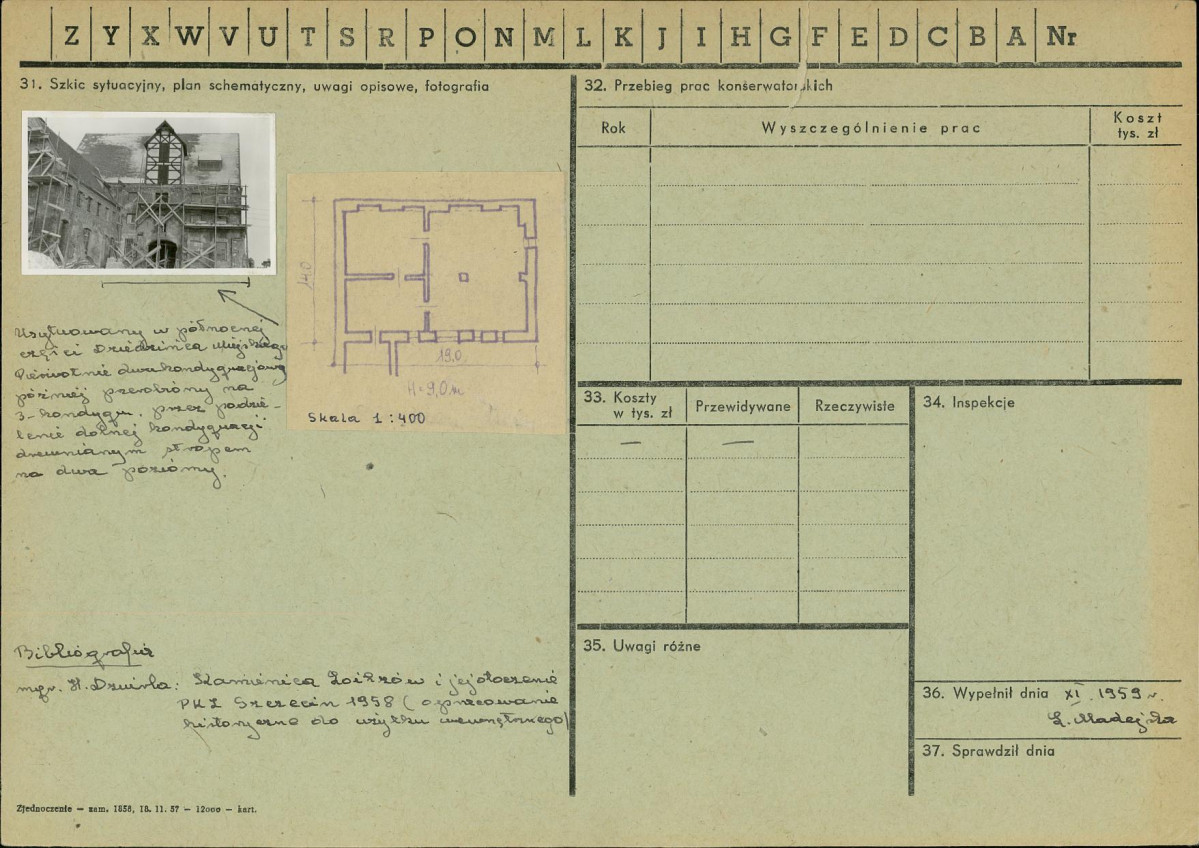 Z Y X W V U T S R P O N M L K J I H G F E D C B A Nr
31. Szkic sytuacyjny, plan schematyczny, uwagi opisowe, fotografia
14.0
19.0
H=9,0 m
Skala 1:400
Usytuowany w północnej
części Dziedzińca Miejskiego
Pierwotnie dwukondygnacjowy
później przerobiony na
3-kondygn. przez podzie-
lenie dolnej kondygnacji
drewnianym stropem
na dwa poziomy.
Bibliografia
mgr. H. Dziurla: Kamienica Loitzów i jej otoczenie
PKZ Szczecin 1958 (opracowanie
historyczne do użytku wewnętrznego)
Zjednoczenie — zam. 1858, 18. 11. 57 — 12000 — kart.
32. Przebieg prac konserwatorskich
Rok
Wyszczególnienie prac
Koszt
tys. zł
33. Koszty
w tys. zł
Przewidywane
Rzeczywiste
— —
34. Inspekcje
35. Uwagi różne
36. Wypełnił dnia XI. 1959 r.
Ł. Madejska
37. Sprawdził dnia